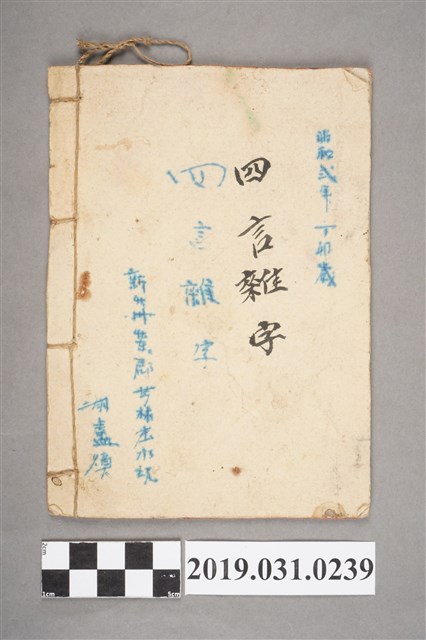 昭和弍年 丁卯歲
四言雜字
四言雜字
新竹州竹東郡芎林庄水坑
2cm
1cm
5cm
2019.031.0239